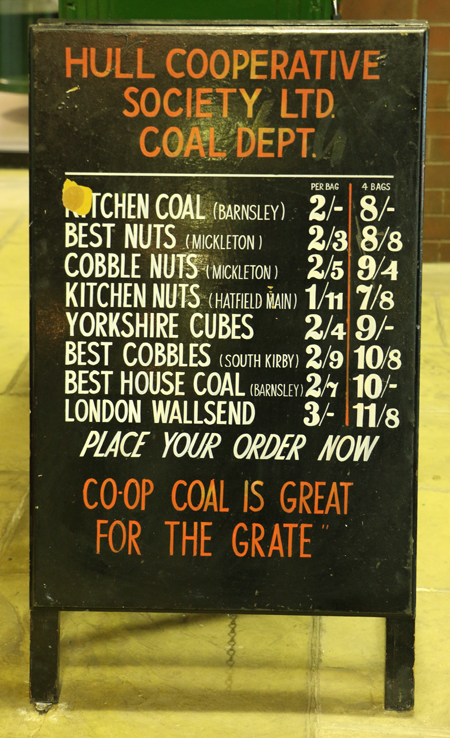 HULL COOPERATIVE
SOCIETY LTD.
COAL DEPT.
PER BAG 4 BAGS
KITCHEN COAL (BARNSLEY) 2/- 8/-
BEST NUTS (MICKLETON) 2/3 8/8
COBBLE NUTS (MICKLETON) 2/5 9/4
KITCHEN NUTS (HATFIELD MAIN) 1/11 7/8
YORKSHIRE CUBES 2/4 9/-
BEST COBBLES (SOUTH KIRBY) 2/9 10/8
BEST HOUSE COAL (BARNSLEY) 2/7 10/-
LONDON WALLSEND 3/- 11/8
PLACE YOUR ORDER NOW
CO-OP COAL IS GREAT
FOR THE GRATE "